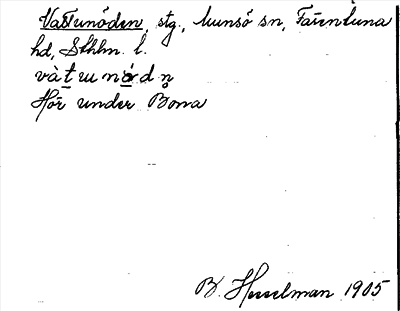 Vattunöden, stg., Munsö sn, Färentuna
hd, Sthlm. l.
và t̲ ɯ n ó̲ d n̥
Hör under Bona
B. Hesselman 1905